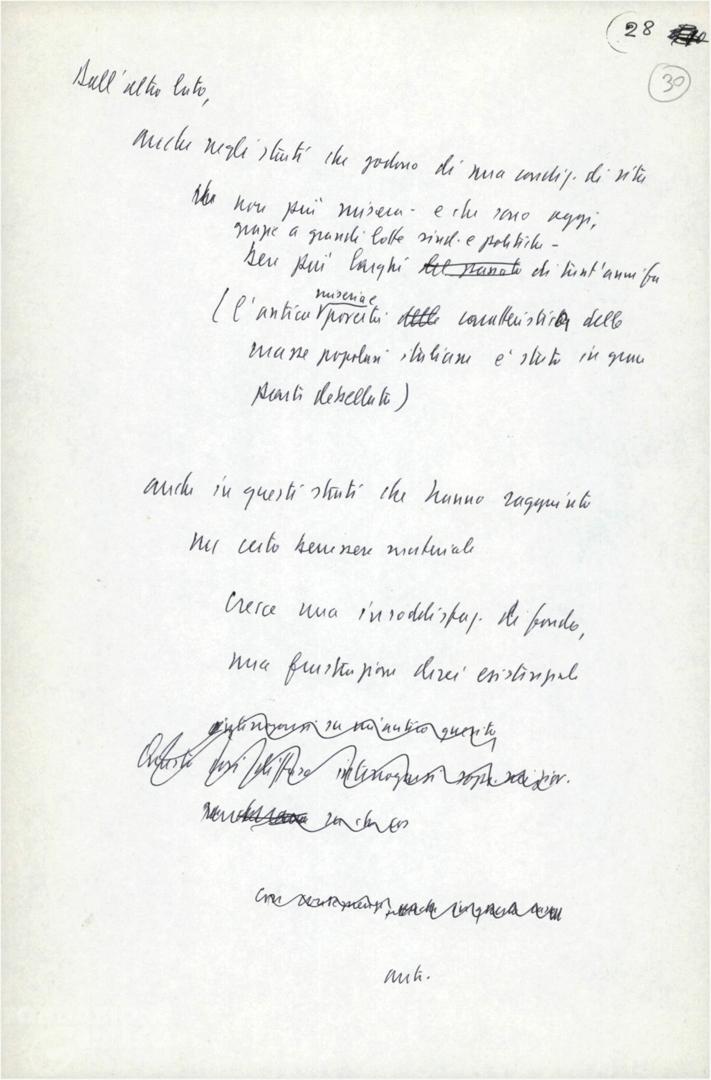 28
30
Dall'altro lato,
anche negli strati che godono di una condiz. di vita
non più misera - e che sono oggi,
grazie a grandi lotte sind. e politiche -
ben più larghi del passato di vent'anni fa
miseria e
(l'antica povertà delle caratteristica delle
masse popolari italiane è stata in gran
parte debellata)
anche in questi strati che hanno raggiunto
un certo benessere materiale
cresce una insoddisfaz. di fondo,
una frustrazione direi esistenziale
interrogarsi su un antico quesito
Questo così diffuso interrogarsi
su che cos